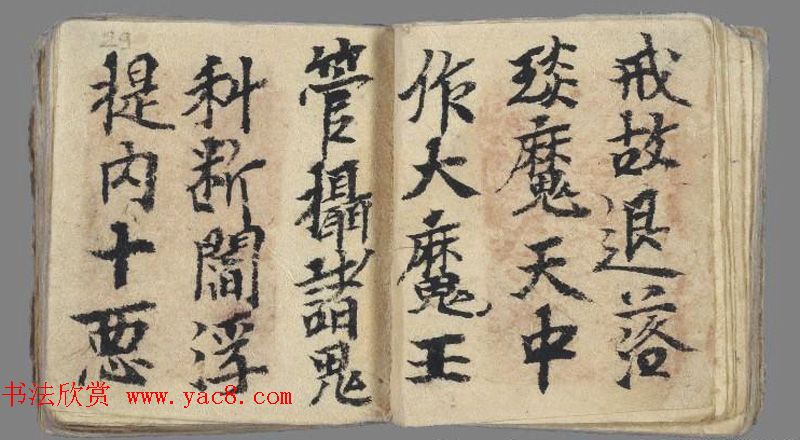 戒故退落
琰魔天中
作大魔王
管攝諸鬼
科断閻浮
提内十𢙣
29
书法欣赏 www.yac8.com